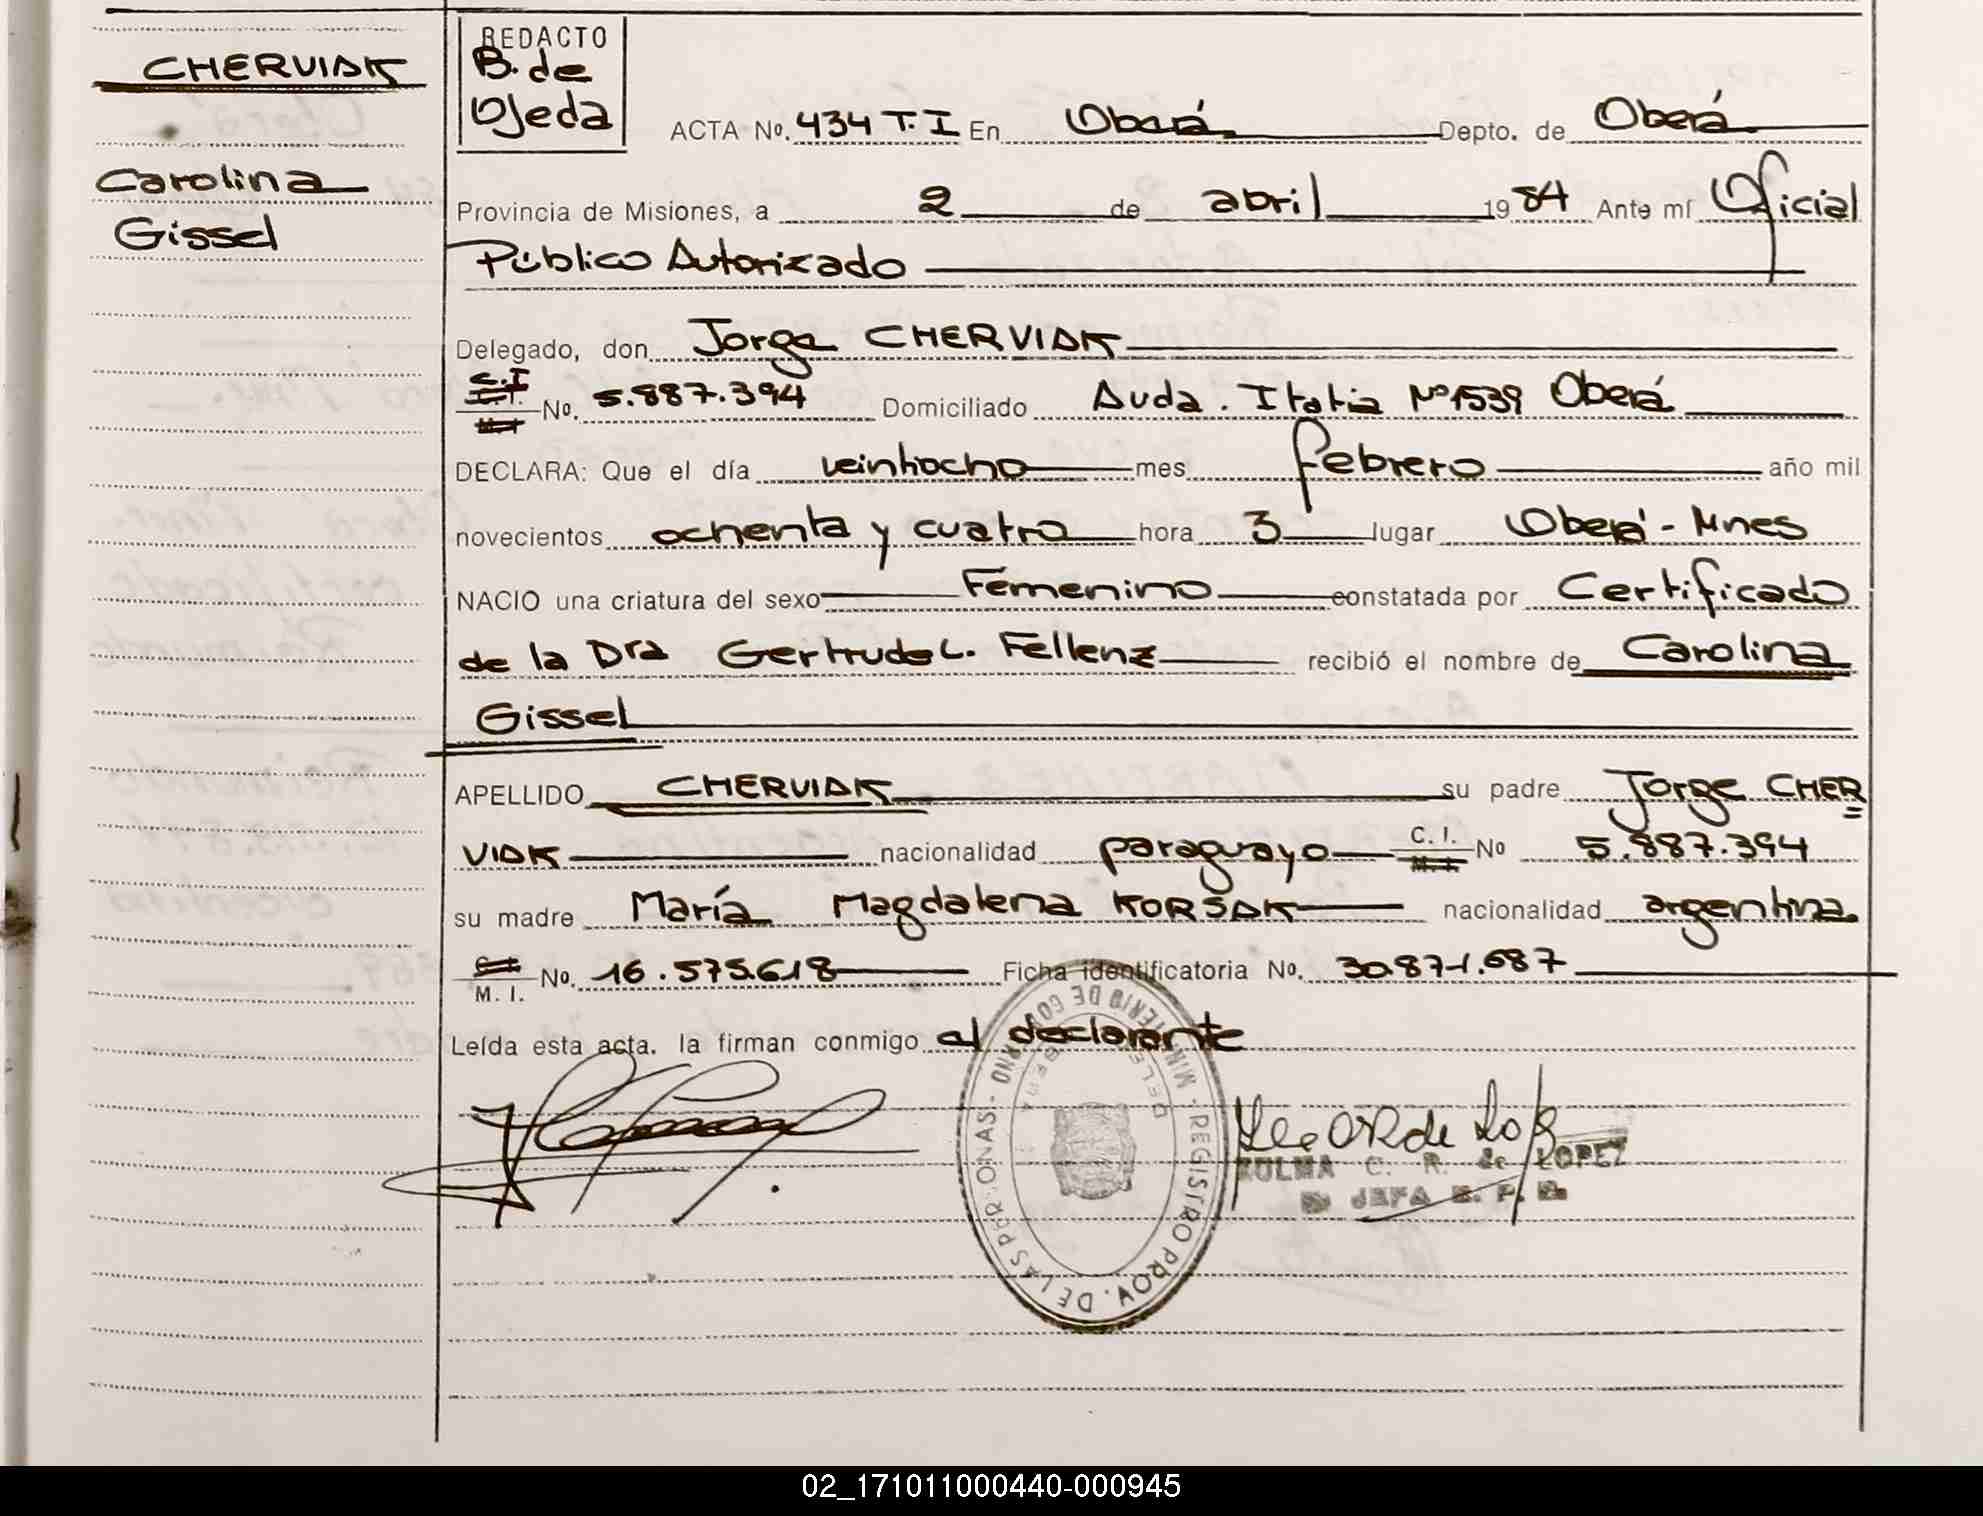 CHERVIAK
Carolina
Gissel
REDACTO
B. de
Ojeda
ACTA No. 434 T. I En Oberá Depto. de Oberá
Provincia de Misiones, a 2 de abril 1984 Ante mí Oficial
Público Autorizado
Delegado, don Jorge CHERVIAK
C.I No. 5.887.394 Domiciliado Avda. Italia Nº1539 Oberá
DECLARA: Que el día veintiocho mes febrero año mil
novecientos ochenta y cuatro hora 3 lugar Oberá - Mnes
NACIO una criatura del sexo Femenino constatada por Certificado
de la Dra Gertrudes L. Fellenz recibió el nombre de Carolina
Gissel
APELLIDO CHERVIAK su padre Jorge CHER
VIAK nacionalidad paraguayo C. I. M. I. No 5.887.394
su madre María Magdalena KORSAK nacionalidad argentina
M. I. No. 16.575.618 Ficha identificatoria No. 30.871.687
Leída esta acta, la firman conmigo el declarante
MINISTERIO DE GOBIERNO - REGISTRO PROV. DE LAS PERSONAS -
DELEG OBERA
ZULMA C. R. de LOPEZ
JEFA
02_171011000440-000945